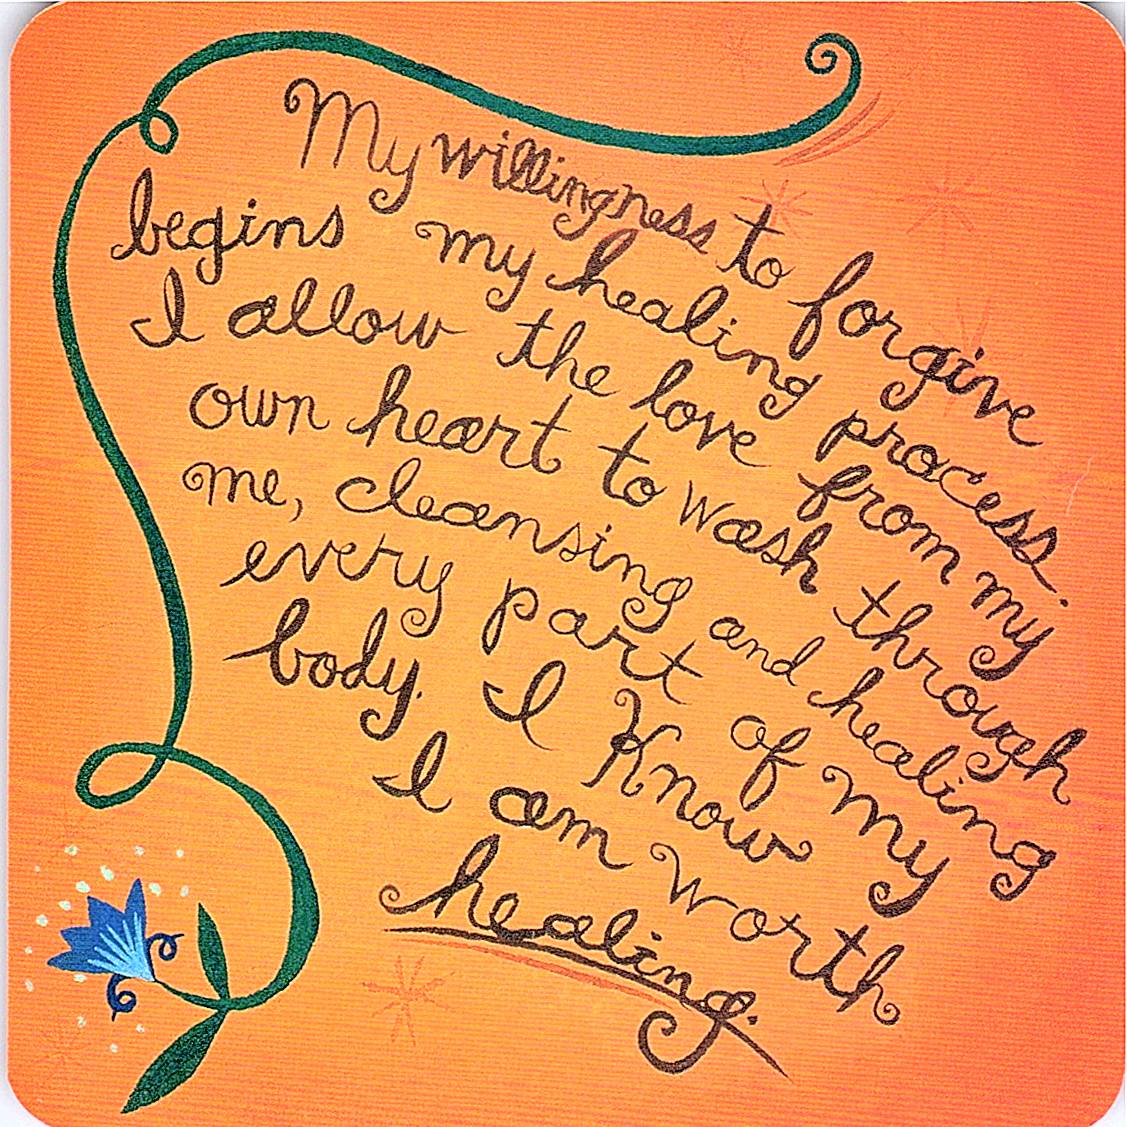 My willingness to forgive
begins my healing process.
I allow the love from my
own heart to wash through
me, cleansing and healing
every part of my
body. I Know
I am worth
healing.